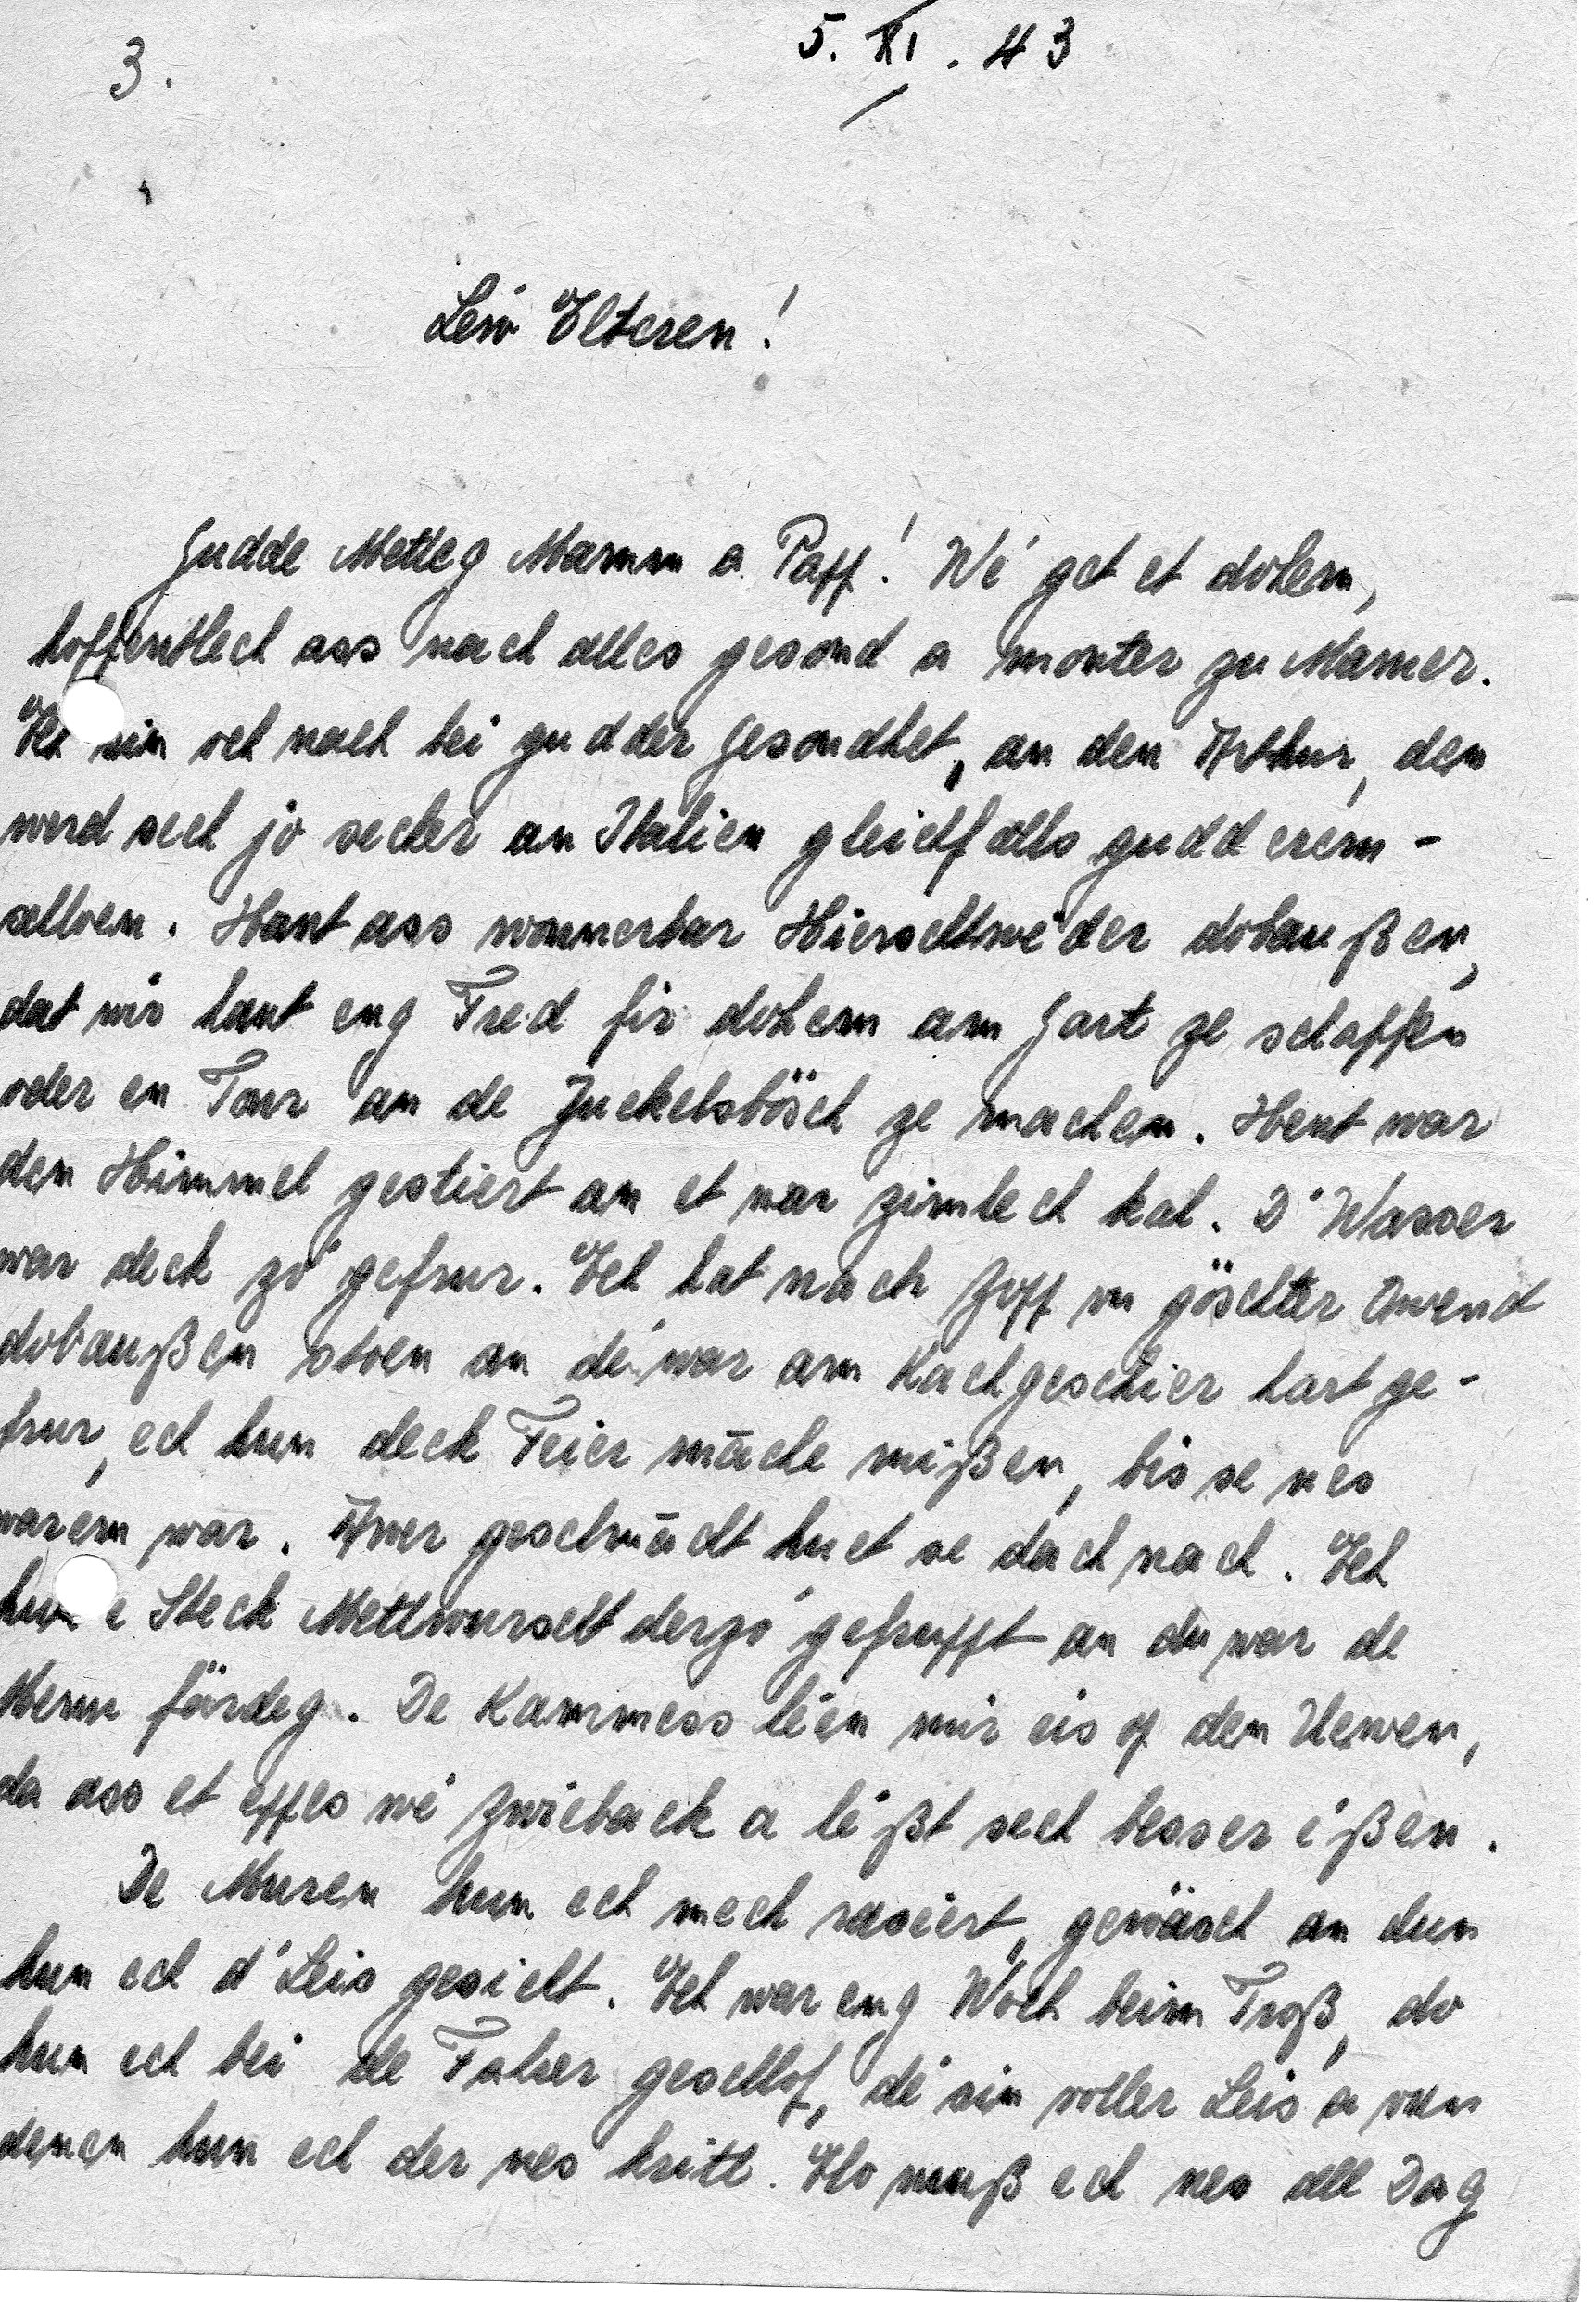 3.
5. XI. 43
Léiw Elteren!
Gudde Metteg Mamm a Papp! Wé get et dohem,
hoffentlech ass nach alles gesond a monter zu Mamer.
Ech sin och nach bei gudder Gesondhet, an den Arthur, den
werd sech jo secher an Italien gleichfalls gudd erem-
alben. Haut ass wonnerbar Hierschtwéder dobaußen,
dat wir haut eng Fred fir dohem am Gart ze schaffen
oder en Tour an de Juckelsbösch ze machen. Hent war
den Himmel gestiert an et war zimlech kal. D'Wasser
war deck zó gefrur. Ech hat nach Zopp vu göschter Owend
dobaußen stoen an dé war am Kachgeschier hart ge-
frur, ech hun deck Feier mache mißen, bis se nes
warem war. Awer geschmācht huet se dach nach. Ech
hun e Steck Mettwurscht derzó gefruppt an du war de
Menu färdeg. De Kammess léen mir eis op den Uewen,
da ass et eppes wé Zwieback a léßt sech besser ießen.
De Muren hun ech mech raséiert, gewäsch an dun
hun ech d'Leis gesicht. Ech war eng Woch beim Troß, do
hun ech bei de Fahrer geschlof, dé sin voller Leis a vun
denen hun ech der nes kritt. Elo muß ech nes all Dag